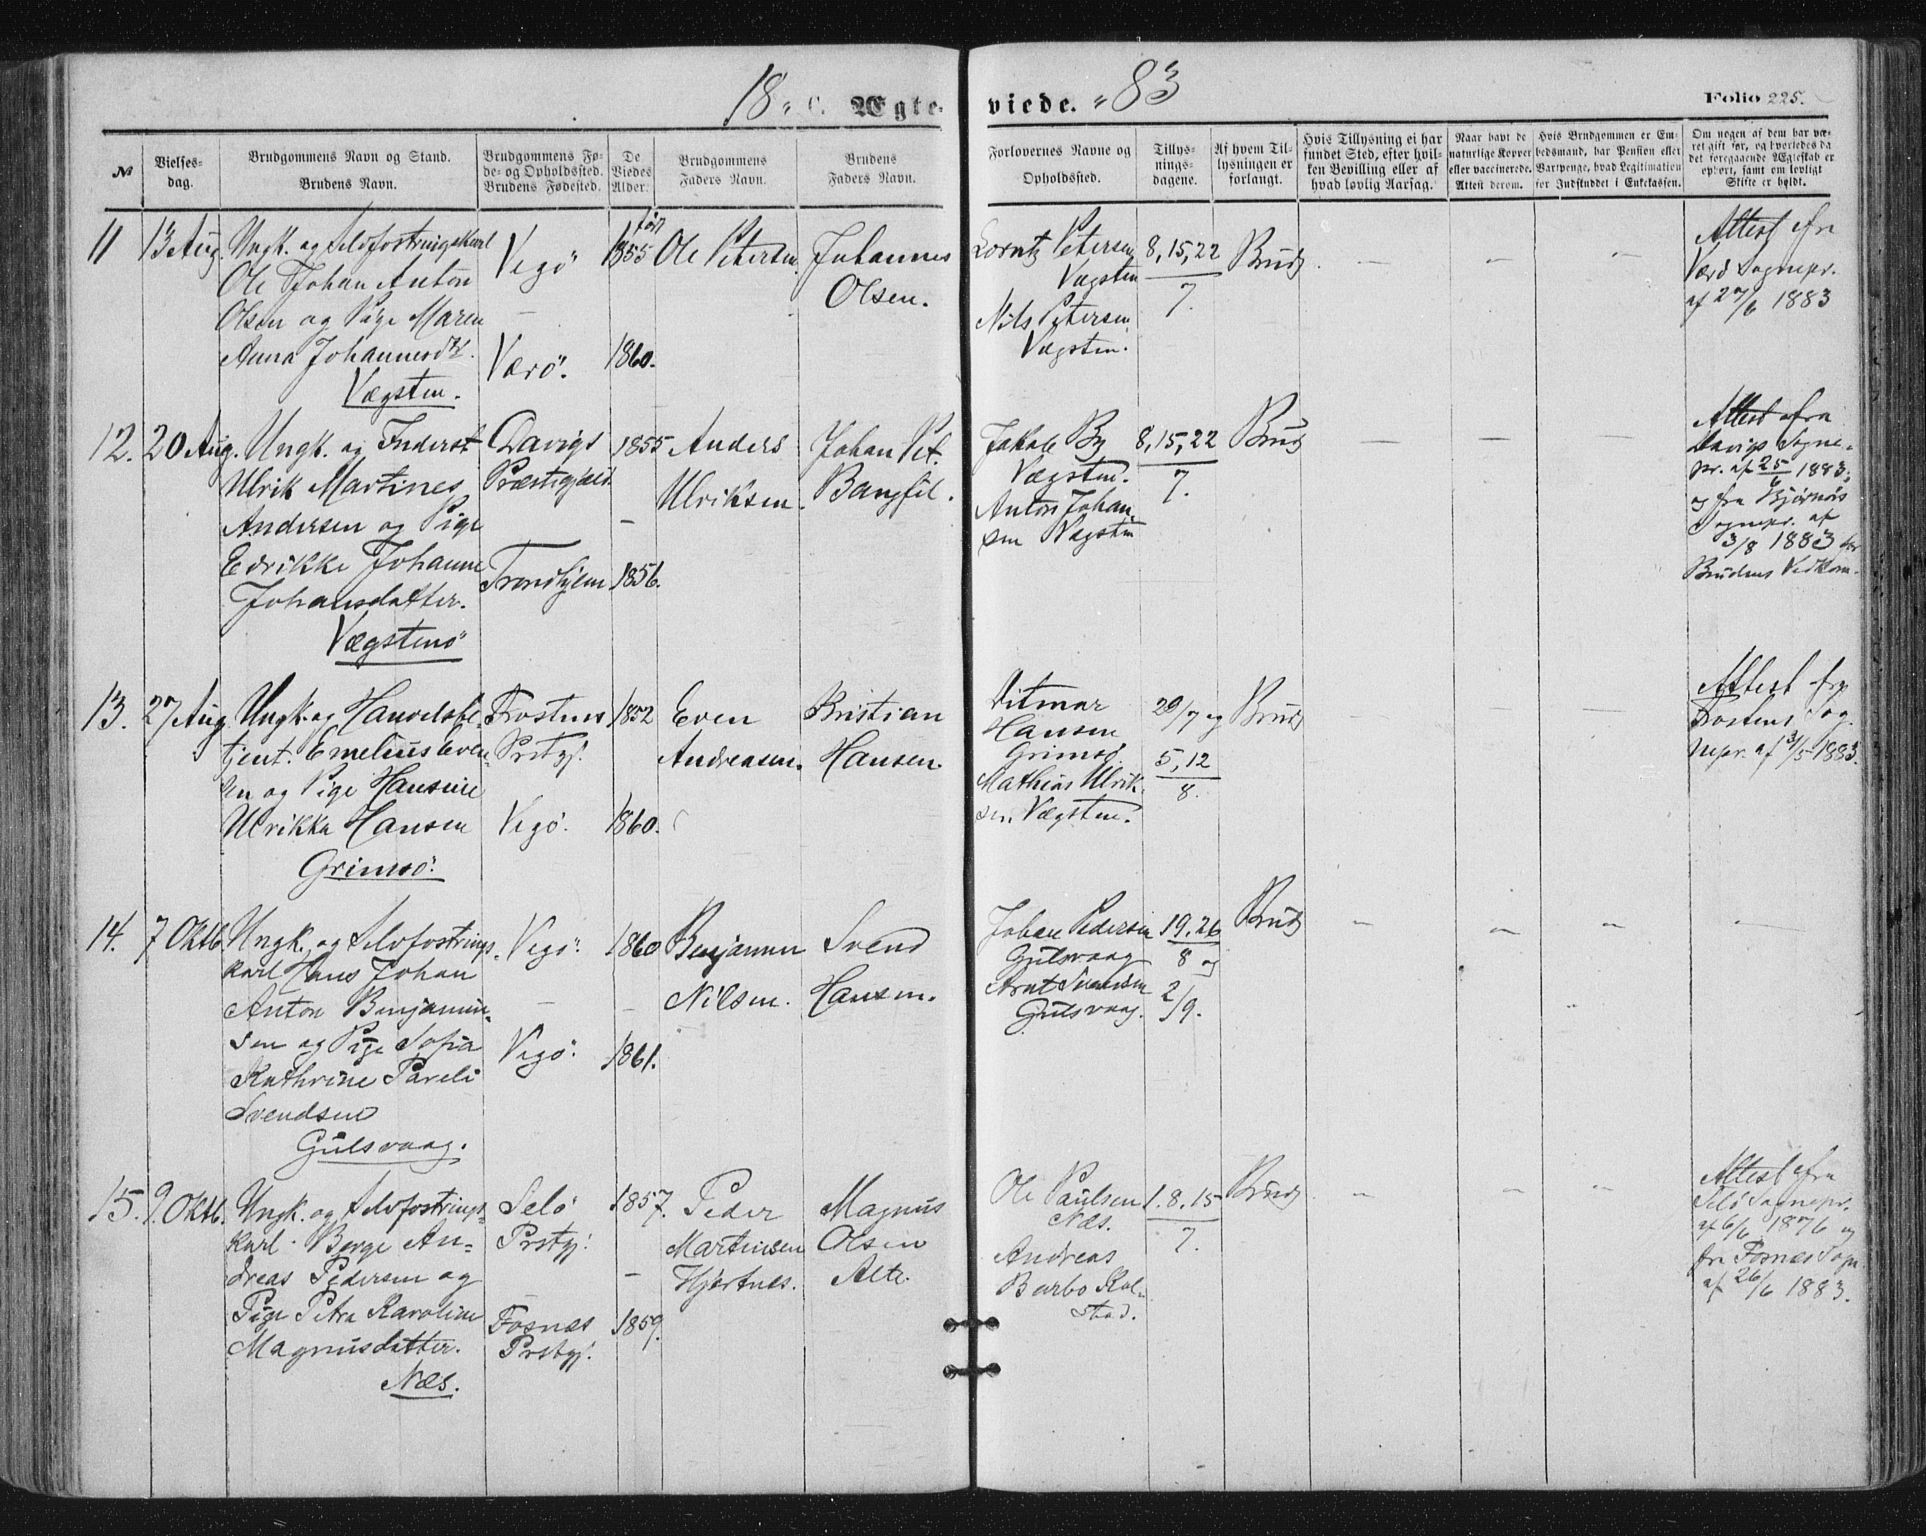 18 " C. Ægteviede. " 83
Folio 225.
No
Vielsesdag.
Brudgommens Navn og Stand.
Brudens Navn.
Brudgommens Fø-
de- og Opholdssted.
Brudens Fødested.
De
Viedes
Alder.
Brudgommens
Faders Navn.
Brudens
Faders Navn.
Forlovernes Navne og
Opholdssted.
Tillys-
nings-
dagene.
Af hvem Til-
lysningen er
forlangt.
Hvis Tillysning ei har
fundet Sted, efter hvil-
ken Bevilling eller af
hvad lovlig Aarsag.
Naar havt de
naturlige Kopper
eller vaccinerede.
Attest derom.
Hvis Brudgommen er Em-
bedsmand, har Pension eller
Vartpenge, hvad Legitimation
for Indskuddet i Enkekassen.
Om nogen af dem har væ-
ret gift før, og hvorledes da
det foregaaende Ægteskab er
ophørt, samt om lovligt
Skifte er holdt.
11
13 Aug.
Ungk. og Selvfostringskarl
Ole Johan Anton
Olsen og Pige Maren
Anna Johannesdtr.
Vægsten.
Vegö
–
Værö.
født
1855
1860.
Ole Petersen.
Johannes
Olsen.
Lorntz Petersen
Vægsten
Nils Petersen
Vægsten.
8, 15, 22
7.
Brudg.
–
–
–
Attest fra
Værö Sognepr.
af 27/6 1883
12.
20 Aug.
Ungk. og Inderst
Ulrik Martines
Andersen og Pige
Edrikke Johanne
Johansdatter.
Vægstenö
Davigs
Præstegjæld
–
Trondhjem
1855
1856.
Anders
Ulriksen.
Johan Pet.
Bangfil.
Jakob By
Vægsten.
Anton Johan-
sen Vægsten
8, 15, 22
7.
Brudg
–
–
–
Attest fra
Davigs Sogne-
pr. af 25/6 1883;
og fra Bjørnörs
Sognepr. af
3/8 1883 for
Brudens Vedkom.
13.
27 Aug
Ungk. og Handelsbe-
tjent. Emelius Even-
sen og Pige Hansine
Ulrikka Hansen
Grimsö.
Frostens
Prstgj.
Vegö.
1852
1860.
Even
Andreasen.
Kristian
Hansen.
Ditmar
Hansen
Grimsö.
Mathias Ulrik-
sen Vægsten.
29/7 og
5, 12
8.
Brudg
–
–
–
Attest fra
Frostens Sog-
nepr. af 31/5 1883.
14.
7 Oktb.
Ungk. og Selvfostrings-
karl Hans Johan
Anton Benjamin-
sen og Pige Sofia
Kathrine Pareli
Svendsen
Gulsvaag.
Vegö.
–
Vegö.
1860
–
1861.
Benjamin
Nilsen.
Svend
Hansen.
Johan Pedersen
Gulsvaag
Arnt Svendsen
Gulsvaag.
19, 26
8 og
2/9.
Brudg
–
–
–
–
15.
9. Oktb.
Ungk. og Selvfostrings-
karl Berge An-
dreas Pedersen og
Pige Petra Karoline
Magnusdatter.
Næs.
Selö
Prstgj.
Fosnæs
Prstgj.
1857.
–
1859.
Peder
Martinsen
Hjertnes.
Magnus
Olsen
Alte.
Ole Paulsen
Næs.
Andreas
Barbo Rol-
stad.
1. 8. 15
7.
Brudg
–
–
–
Attest fra
Selö Sognepr.
af 6/6 1876 og
fra Fosnæs Sogn.
af 26/6 1883.